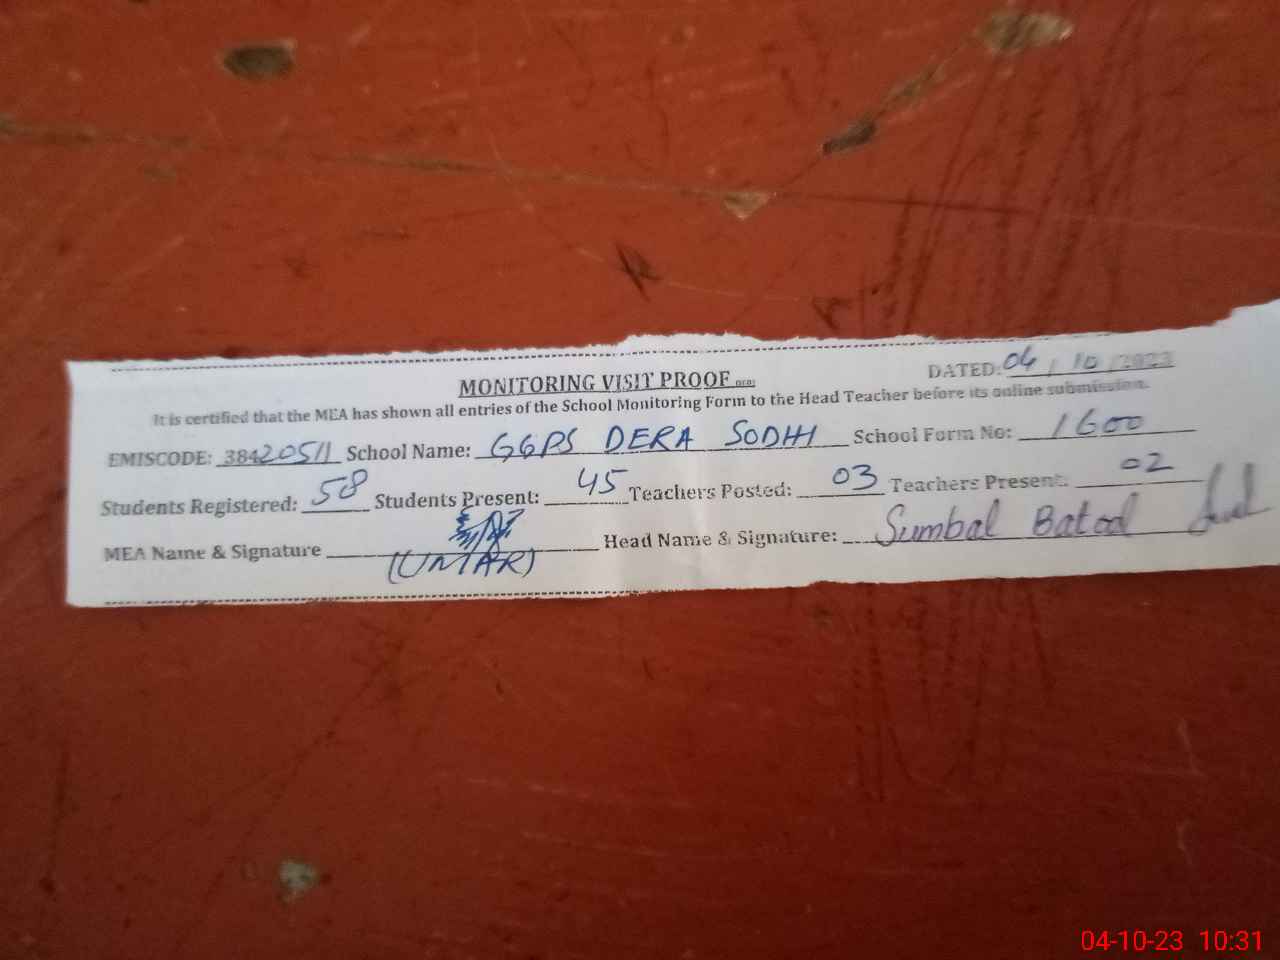 DATED: 04/10/2023
MONITORING VISIT PROOF
It is certified that the MEA has shown all entries of the School Monitoring Form to the Head Teacher before its online submission.
EMISCODE: 38420511 School Name: GGPS DERA SODHI School Form No: 1600
Students Registered: 58 Students Present: 45 Teachers Posted: 03 Teachers Present: 02
MEA Name & Signature Head Name & Signature: Sumbal Batool
(UMAR)
04-10-23 10:31